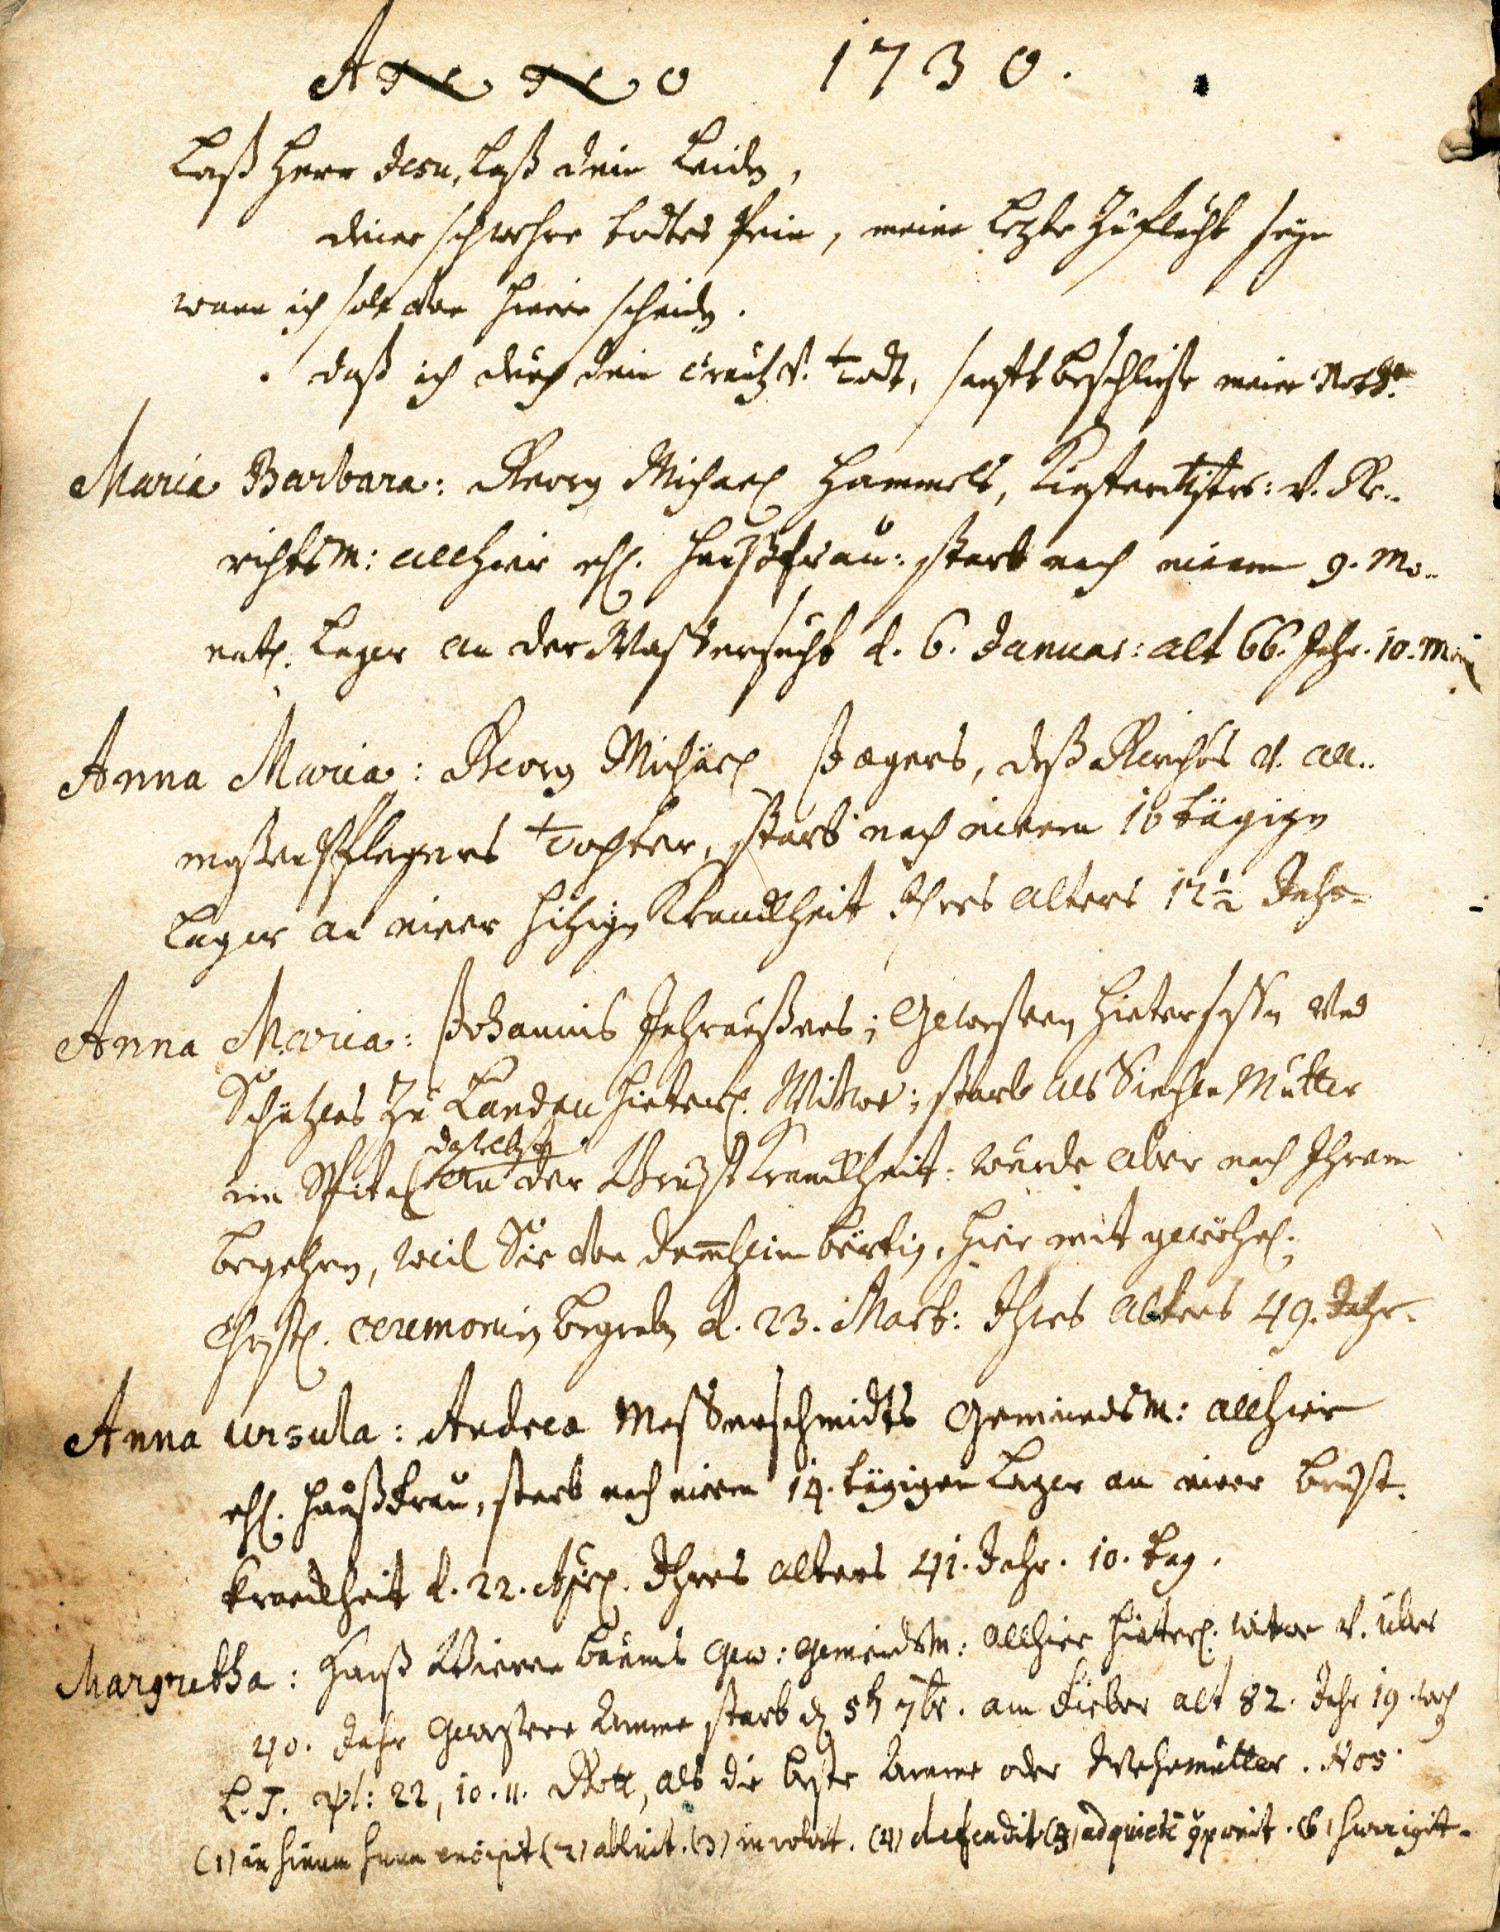 ANNO 1730.
Laß Herr Jesu, laß dein Leiden,
deine schwehre Todtes Pein, meine letzte Zuflucht seyn
wann ich soll von hinnen scheiden.
daß ich durch dein Creutz v. Todt, sanfft beschließe meine Noth.
Maria Barbara: Georg Michael Hammels, Küefermstrs: v. Ge-
richtsm: allhier ehl. Haußfrau: starb nach einem 9. Mo-
natl. Lager an der Wassersucht d. 6. Januar: alt 66. Jahr. 10. Mon
Anna Maria: Georg Michael Jägers, deß Gerichts v. All-
mosenpflegers Tochter, starb nach einem 10 tägigen
Lager an einer hitzigen Kranckheit Ihres alters 12½ Jahr.
Anna Maria: Johannis gewesenen Hintersassen und
Schützens zu Landau hinterl. Witwe; starb als Siechen Mutter
im Spital daselbsten an der Brust Kranckheit: wurde aber nach Ihrem
begehren, weil Sie von Dam̄heim bürtig, hier mit gewöhnl.
Christl. ceremonien begraben d. 23. Mart: Ihres Alters 49. Jahr.
Anna Ursula: Andreæ Messerschmidts Gemeindsm: allhier
ehl. Haußfrau, starb nach einem 14. tägigen Lager an einer Brust-
kranckheit d. 22. Apr. Ihres alters 41. Jahr. 10. tag.
Margretha: Hanß Bierenbaums Gew: Gemeindsm: allhier hinterl. witwe v. über
40. Jahr Gewesene Amme starb d 5t 7br. am Fieber alt 82. Jahr 19. woch
L. T. Ps: 22, 10. 11. Gott, als die beste Amme oder Wehemutter. Nos
(1) in sinum suum excipit (2) abluit. (3) involvit. (4) defendit (5) ad quietē (6)